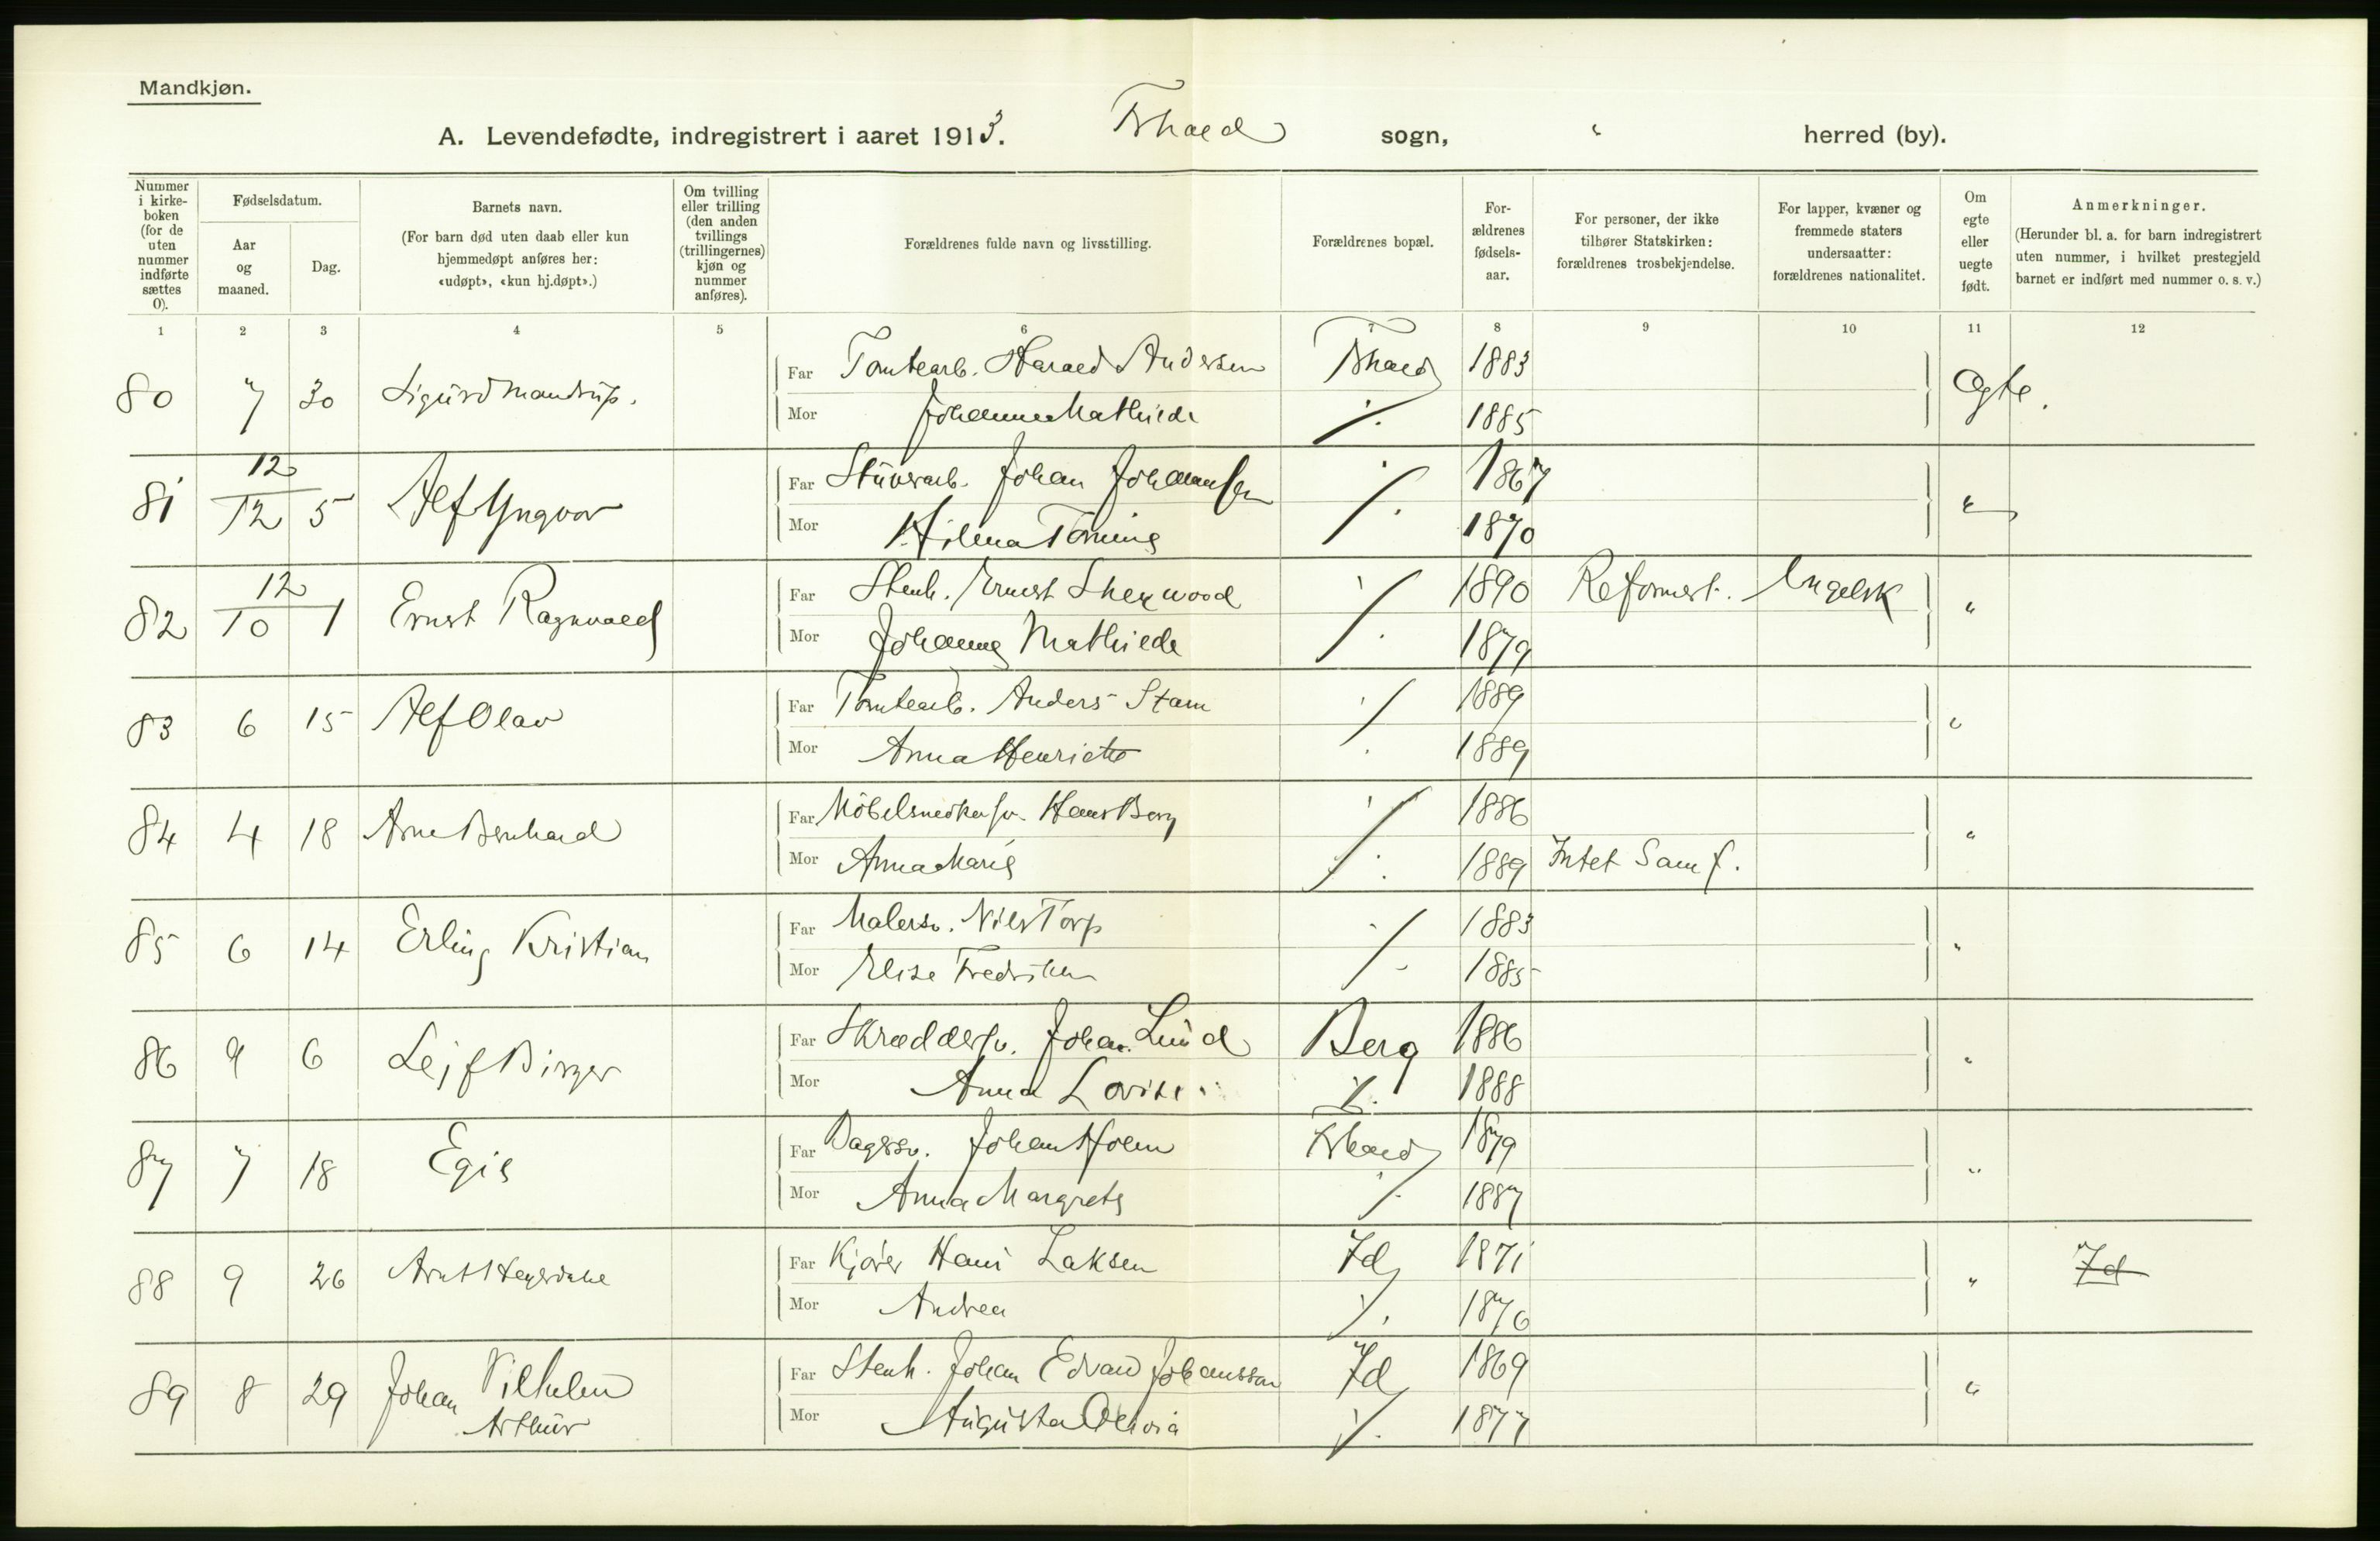 Mandkjøn.
A. Levendefødte, indregistrert i aaret 1913. Frhald sogn, " herred (by).
Nummer i kirkeboken (for de uten nummer indførte sættes 0).
Fødselsdatum.
Aar og maaned.
Dag.
Barnets navn.
(For barn død uten daab eller kun hjemmedøpt anføres her: «udøpt», «kun hj.døpt».)
Om tvilling eller trilling (den anden tvillings (trillingernes) kjøn og nummer anføres).
Forældrenes fulde navn og livsstilling.
Forældrenes bopæl.
Forældrenes fødselsaar.
For personer, der ikke tilhører Statskirken: forældrenes trosbekjendelse.
For lapper, kvæner og fremmede staters undersaatter: forældrenes nationalitet.
Om egte eller uegte født.
Anmerkninger.
(Herunder bl. a. for barn indregistrert uten nummer, i hvilket prestegjeld barnet er indført med nummer o. s. v.)
1 2 3 4 5 6 7 8 9 10 11 12
80 7 30 Sigurd Mandrup. Far Tomtearb. Harald Andersen Frhald 1883 Egte.
Mor Johanne Mathilde ./. 1885
81 12/12 5 Alf Yngvar Far Stuverarb. Johan Johansen ./. 1867 "
Mor Hilma 1870
82 12/10 1 Ernst Ragnvald Far Stenh. Ernest Sherwood ./. 1890 Reformert. Engelsk "
Mor Johanne Mathilde 1879
83 6 15 Alf Olav Far Tomtearb. Anders Stam ./. 1889 "
Mor Anna Henriette 1889
84 4 18 Arne Bernhard Far Möbelsnedkersv. Hans Berg ./. 1886 "
Mor Anna Marie 1889 Intet Samf.
85 6 14 Erling Kristian Far Malersv. Nils Torp ./. 1883 "
Mor Elise Fredrikke 1885
86 9 6 Lejf Birger Far Skræddersv. Johan Lund Berg 1886 "
Mor Anna Lovise ./. 1888
87 7 18 Egil Far Bagersv. Johan Holm Frhald 1879 "
Mor Anna Margrete ./. 1887
88 9 26 Arnt Far Kjører Hans Laksen Id 1871 " Id
Mor Andrea ./. 1876
89 8 29 Johan Vilhelm Far Stenh. Johan Edvard Johanssen Id 1869 "
Arthur Mor Augusta Olivia ./. 1877